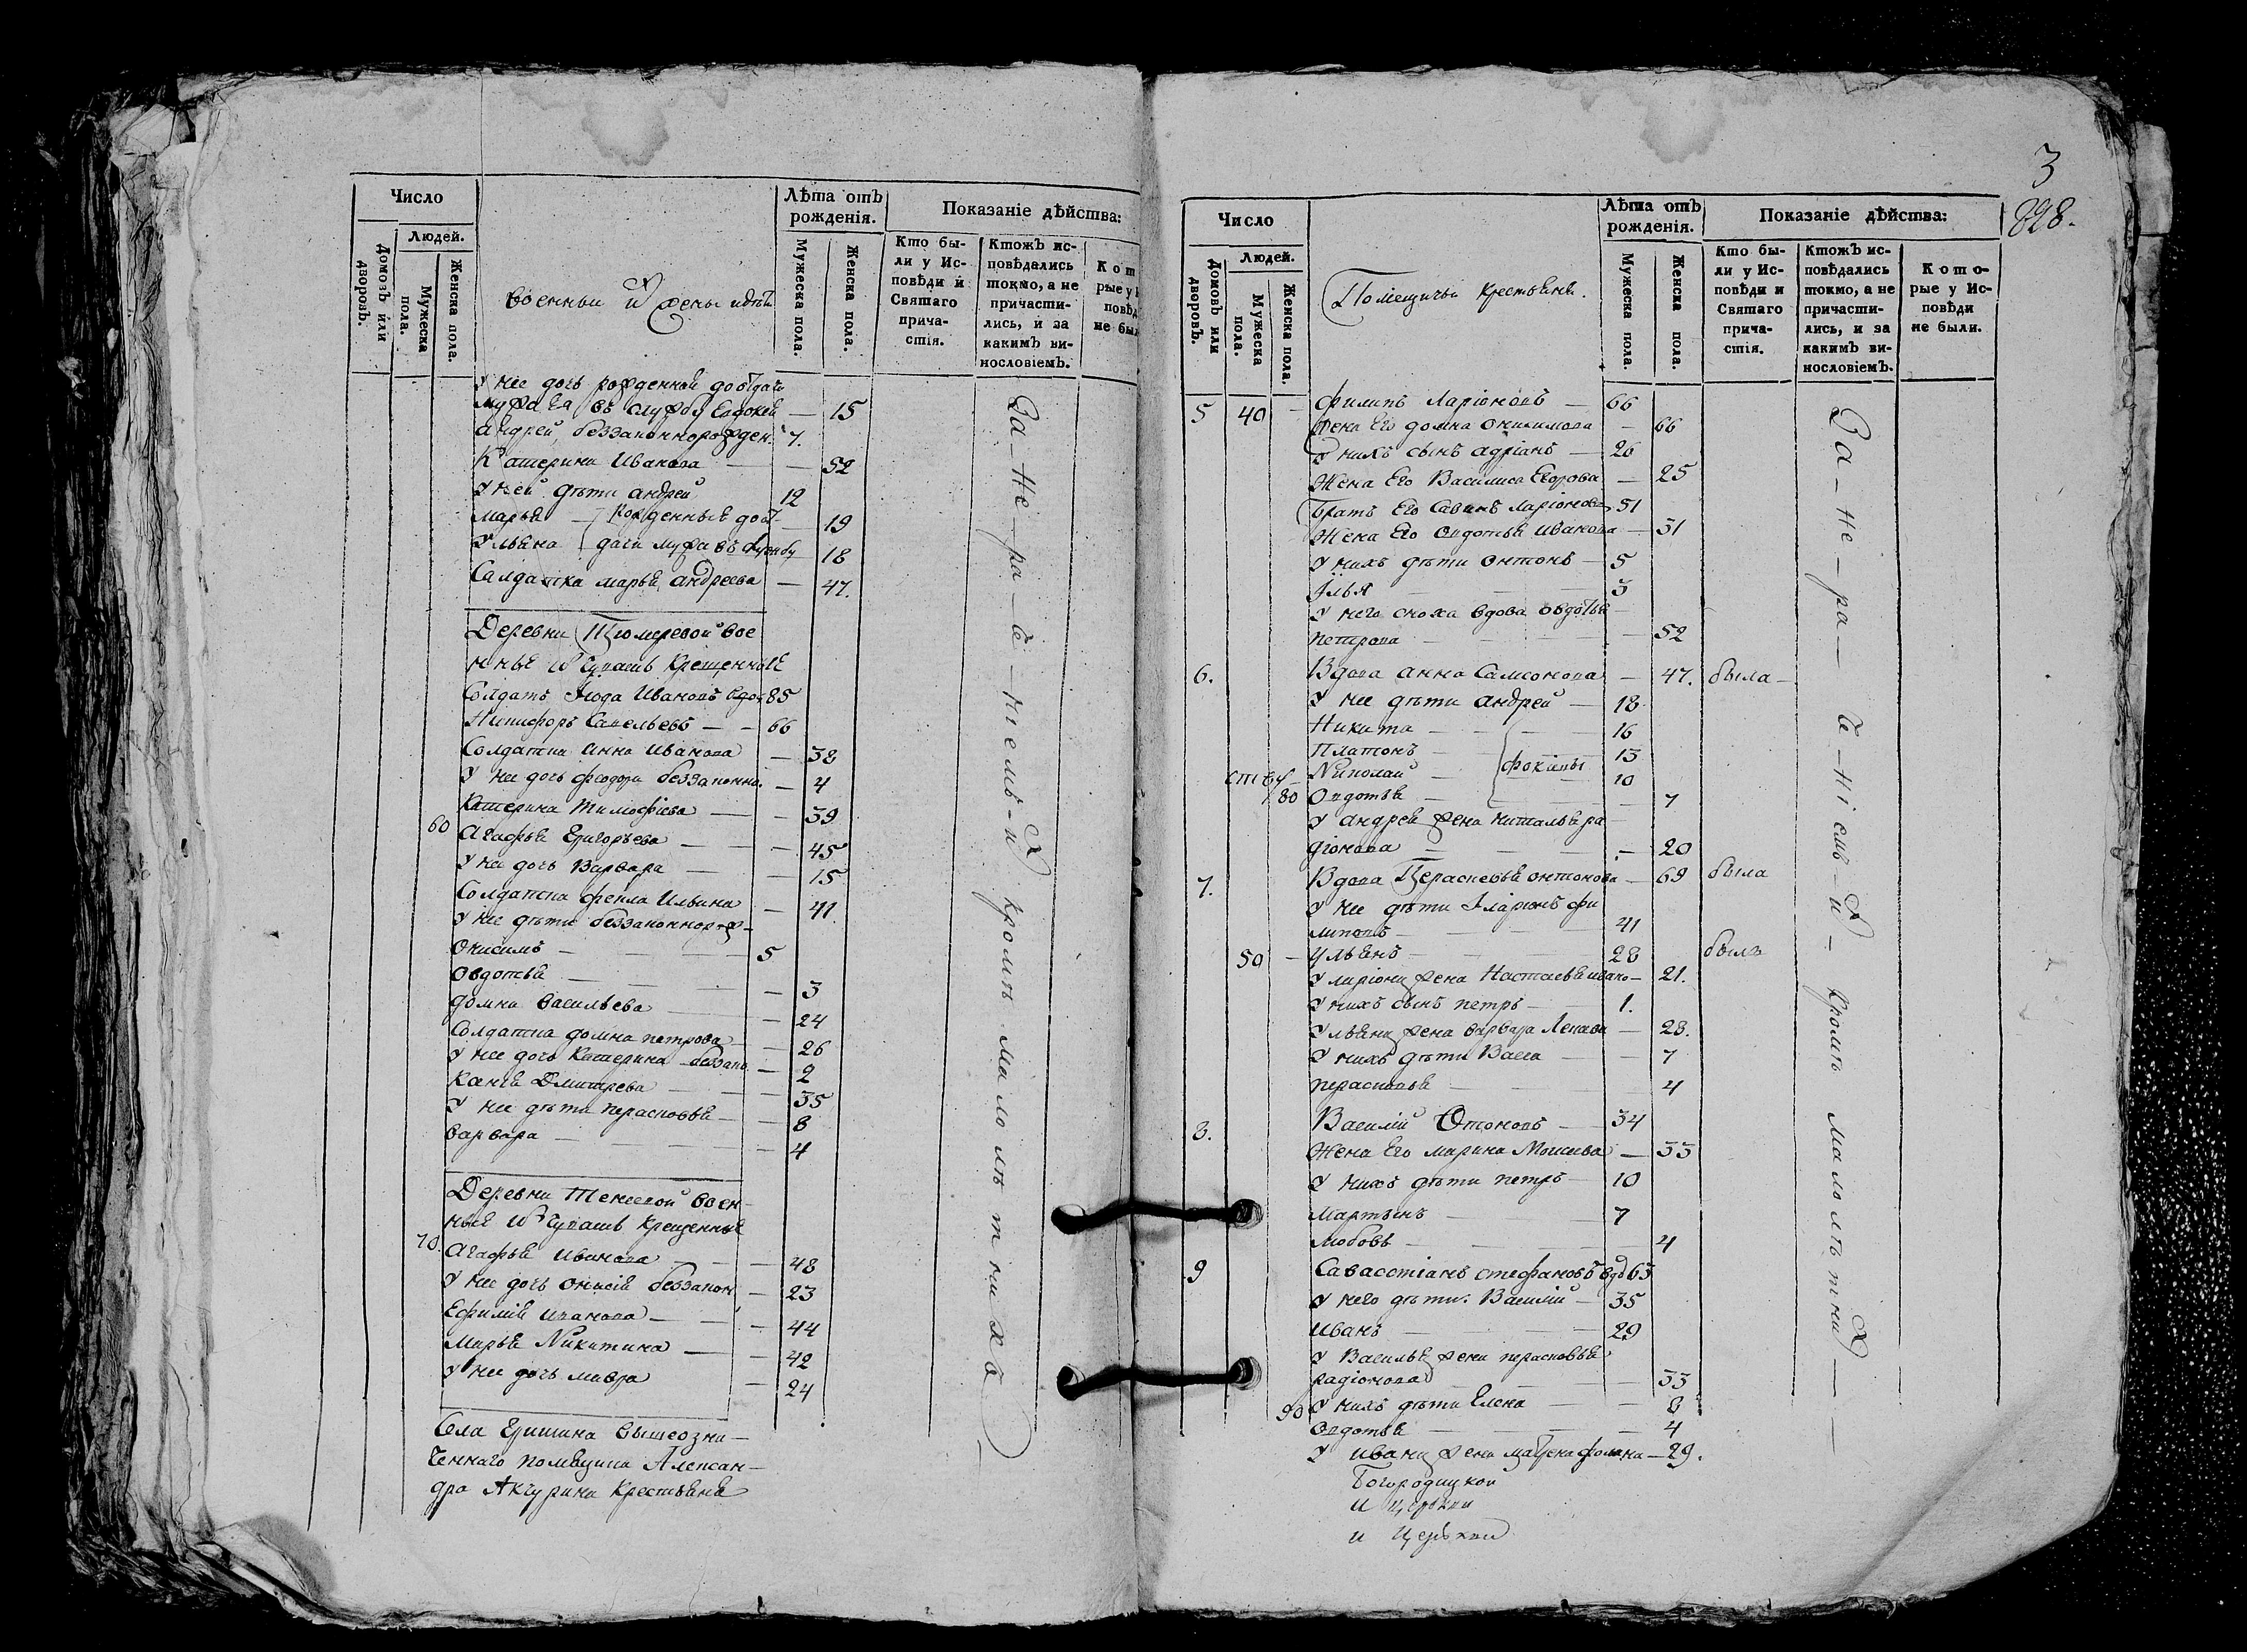 Число
Людей.
Домовъ или дворовъ.
Мужеска пола.
Женска пола.
военныи и жены идѣти
Лѣта отъ рожденія.
Мужеска пола.
Женска пола.
Показаніе дѣйства:
Кто были у Исповѣди и Святаго причастія.
Ктожъ исповѣдались токмо, а не причастились, и за какимъ винословіемъ.
Кот
рые у
повѣд
не был
У нее дочь рожденной до отдачи
мужа ея въ службу Евдокея — 15
андрей, беззаконнорожден: 7.
Катерина Иванова — — 52
У ней дѣти андрей 12
марья — рожденные до от- — 19
Ульяна дачи мужа въ службу 18
Салдатка марья андреева — 47.
Деревни Тюмеревой вое
нные изъ Чувашъ Крещенные
Солдатъ Иванов вдов 85
Никифоръ Савельевъ — — 66
Солдатка Анна Иванова — 38
У нее дочь феодора беззаконно. — 4
Катерина тимофеева — — 39
60 Агафья Григорьева — — 45
У не дочь Варвара — — 15
Солдатка фекла Ильина — 41.
У нее дѣти беззаконнорож-
Онисимъ — 5
Овдотья — — 3
домна Васильева — 24
Солдатка домна петрова — 26
У нее дочь Катерина беззако — 2
Дмитрева — — 35
У нее дѣти перасковья — 8
варвара — — 4
Деревни военные
изъ Чувашъ крещенные
70. Агафья Иванова — 48
У нее дочь беззакон — 23
Ефимия иванова — — 44
Марья Никитина — — 42
У нее дочь мавра — 24
Села вышеозна-
ченнаго помещика Алексан-
дра Акчурина Крестьяне
За-не-ра-че-ніемъ-ихъ кромѣ малолѣтнихъ
3
898.
Число
Людей.
Домовъ или дворовъ.
Мужеска пола.
Женска пола.
Помещичьи крестьяне.
Лѣта отъ рожденія.
Мужеска пола.
Женска пола.
Показаніе дѣйства:
Кто были у Исповѣди и Святаго причастія.
Ктожъ исповѣдались токмо, а не причастились, и за какимъ винословіемъ.
Которые у Исповѣди не были.
5 40 — филипъ Ларіоновъ — 66
жена Его домна — 66
У нихъ сынъ адріанъ — 26
Жена Его Василиса Егорова — 25
Братъ Его Савинъ Ларіоновъ 51
Жена Его Овдотья Иванова — 31
У нихъ дѣти онтонъ — 5
Илья 3
У него сноха вдова овдотья
петрова — 52
6. Вдова анна Самсонова — 47. была —
У нее дѣти андрей — 18
Никита — — 16
Платонъ — 13
Николай — фокины 10
80 Овдотья — — 7
У андрея жена наталья ра
діонова — 20
7. Вдова Перасковья онтонова — 69 была
У нее дѣти Іларіонъ фи
липовъ — 41
50 — Ульянъ — 28 былъ
У ларіона жена Настасья ивано — 21.
У нихъ сынъ петръ — 1.
Ульяна жена варвара — 28.
У нихъ дѣти Васса — — 7
перасковья 4
8. Василій — 34
Жена Его марина — 33
У нихъ дѣти петръ — 10
Мартынъ — 7
Любовь — 4
9 Савастіанъ стефановъ вдо 63
У него дѣти. Василій — 35
Иванъ — 29
У Василья жена перасковья
радіонова 33
90 У нихъ дѣти Елена — — 8
Овдотья — 4
У ивана жена матрена фомина — 29.
Богородицкой
и церькви
и Церькви
За-не-ра-че-ніемъ-ихъ — кромѣ малолѣтнихъ —